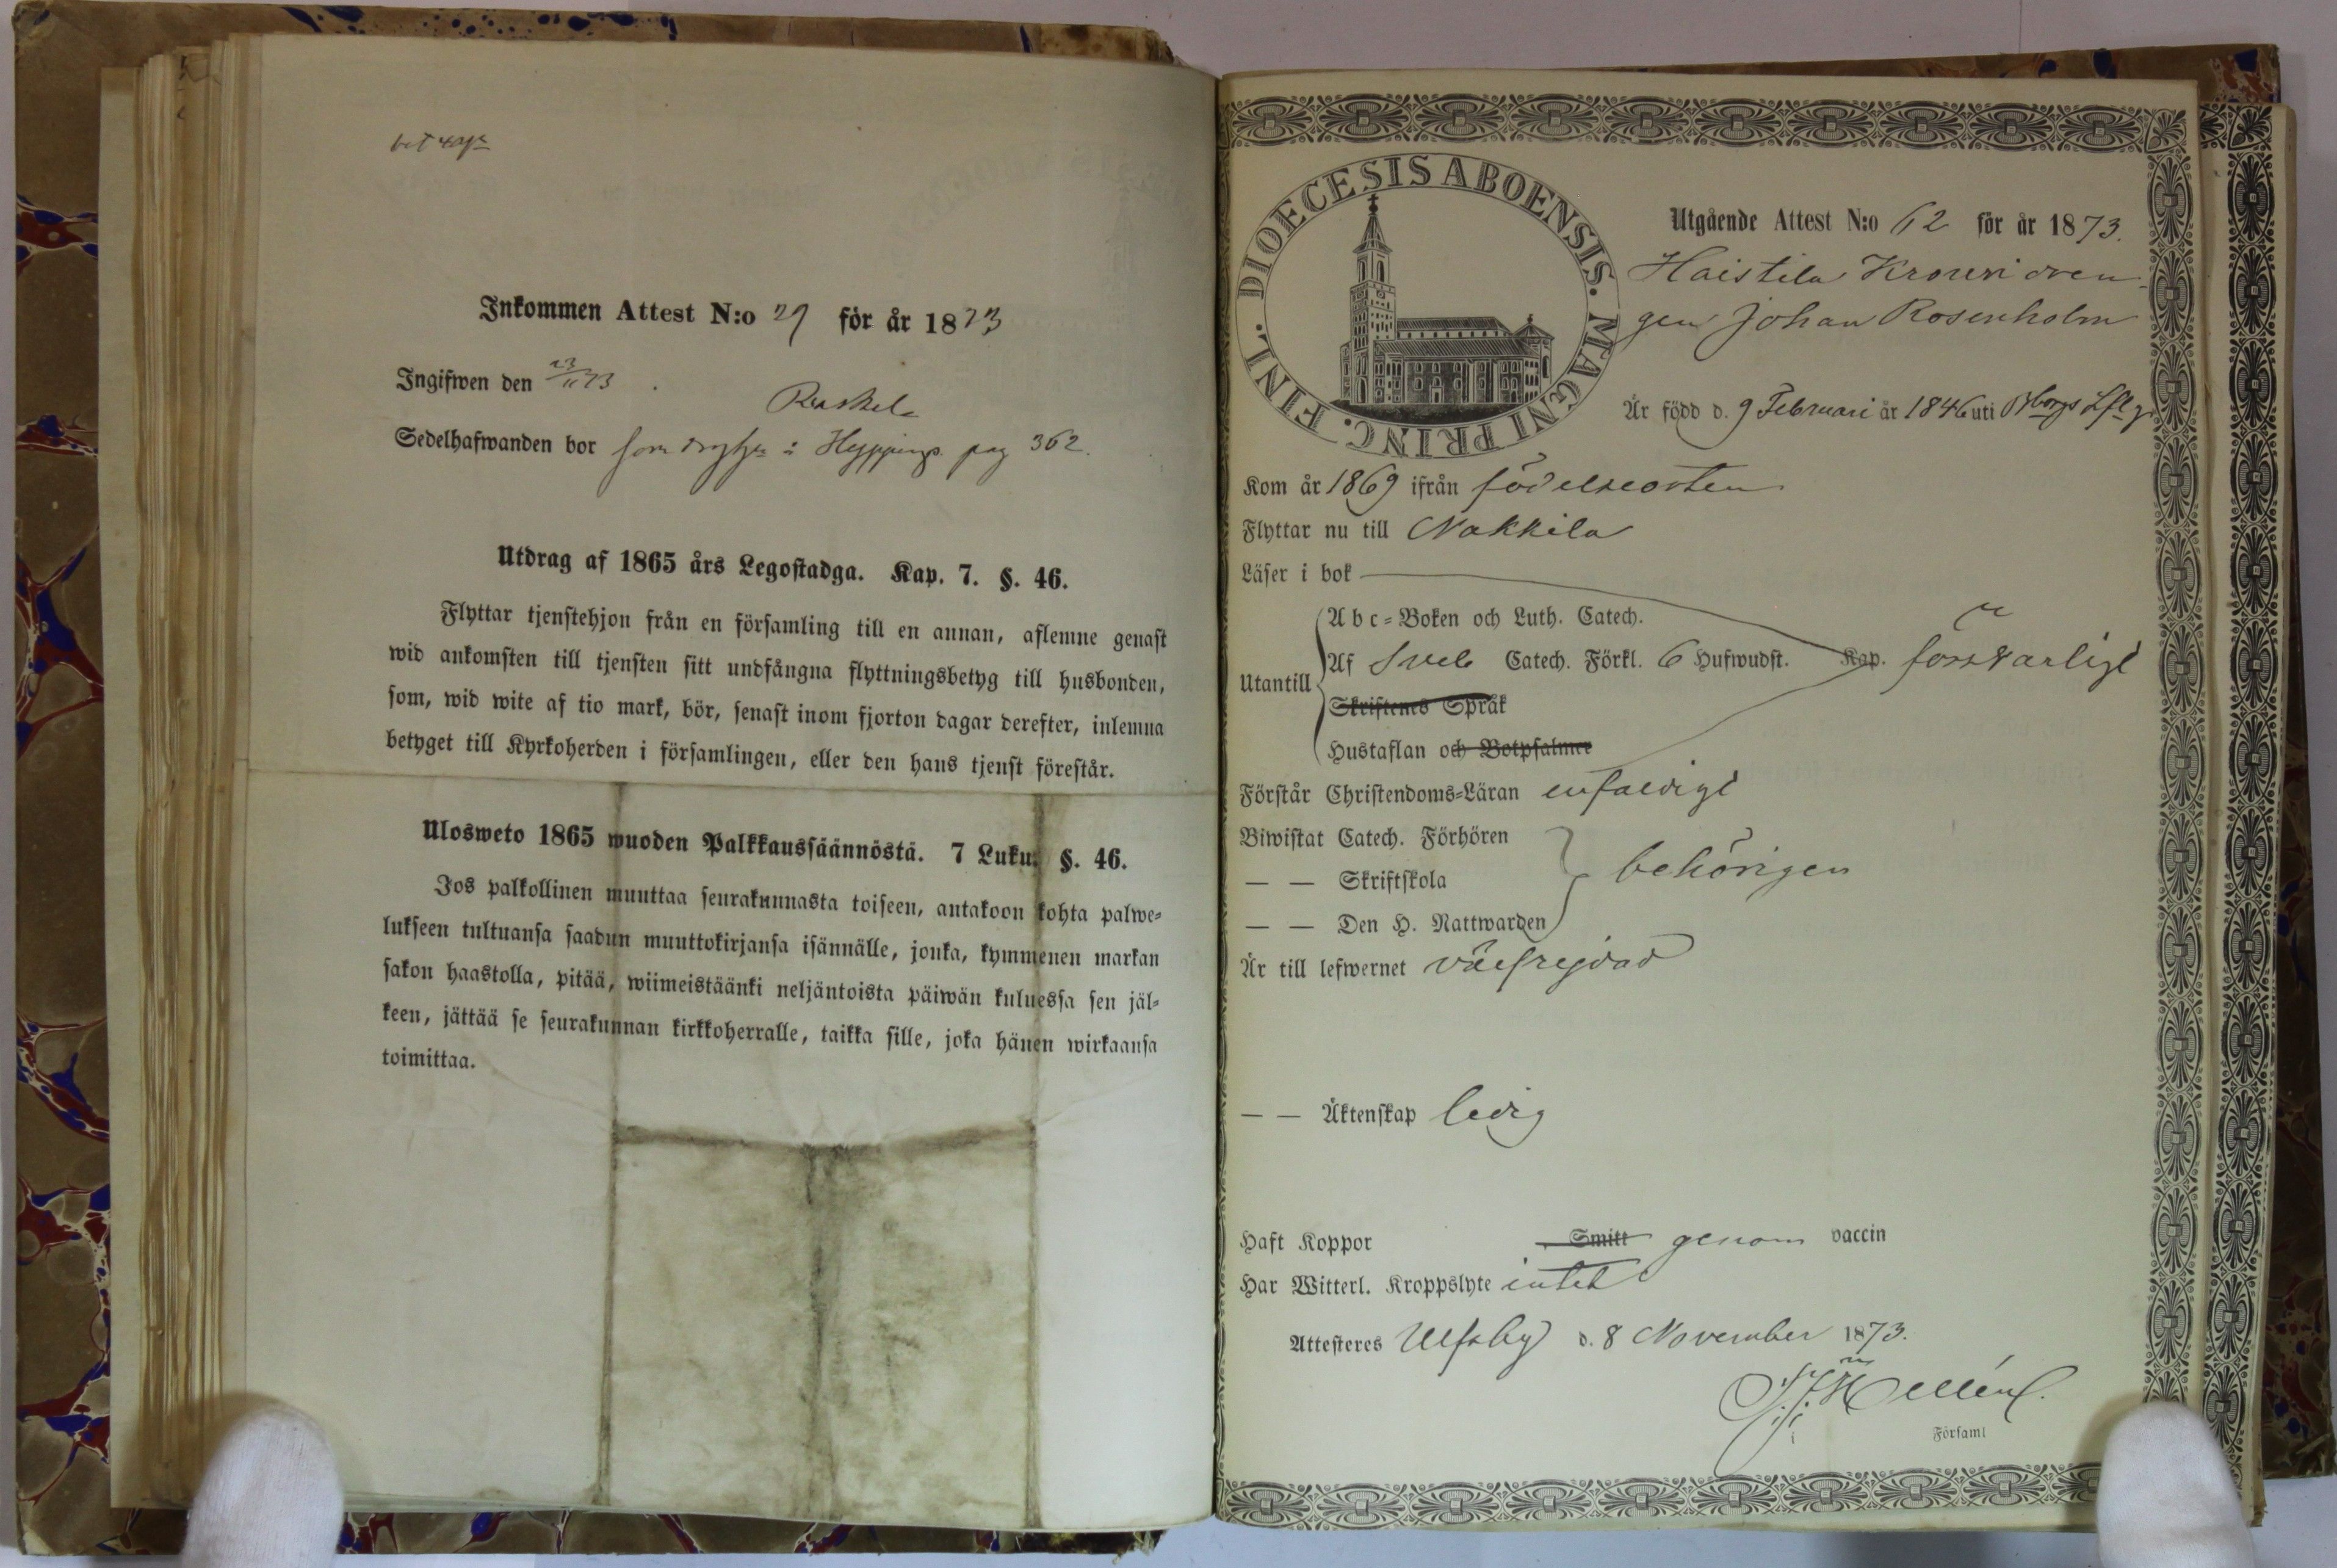 Inkommen Attest N:o 29 för år 1873
Ingifwen den 23/11 73
Sedelhafwanden bor som i Hyppings pag 362.
Utdrag af 1865 års Legostadga. Kap. 7. §. 46.
Flyttar tjenstehjon från en församling till en annan, aflemne genast
wid ankomsten till tjensten sitt undfångna flyttningsbetyg till husbonden,
som, wid wite af tio mark, bör, senast inom fjorton dagar derefter, inlemna
betyget till Kyrkoherden i församlingen, eller den hans tjenst förestår.
Ulosweto 1865 wuoden Palkkaussäännöstä. 7 Luku. §. 46.
Jos palkollinen muuttaa seurakunnasta toiseen, antakoon kohta palwe-
lukseen tultuansa saadun muuttokirjansa isännälle, jonka, kymmenen markan
sakon haastolla, pitää, wiimeistäänki neljäntoista päiwän kuluessa sen jäl-
keen, jättää se seurakunnan kirkkoherralle, taikka sille, joka hänen wirkaansa
toimittaa.
DIOECESIS ABOENSIS. MAGNI PRINC. FINL.
Utgående Attest N:o 62 för år 1873.
Haistila Krouvi dren-
gen Johan Rosenholm
Är född d. 9 Februari år 1846 uti
Kom år 1869 ifrån födelseorten
Flyttar nu till Nakkila
Läser i bok
Utantill
Abc-Boken och Luth. Catech.
Af Sveb Catech. Förkl. 6 Hufwudst. Kap. försvarligt
Skriftenes Språk
Hustaflan och Botpsalmer
Förstår Christendoms-Läran enfaldigt
Biwistat Catech. Förhören
— — Skriftskola behörigen
— — Den H. Nattwarden
Är till lefwernet välfrejdad
— — Äktenskap ledig
Haft Koppor Smitt genom vaccin
Har Witterl. Kroppslyte intet
Attesteres Ulfsby d. 8 November 1873.
Hellén
i Församl